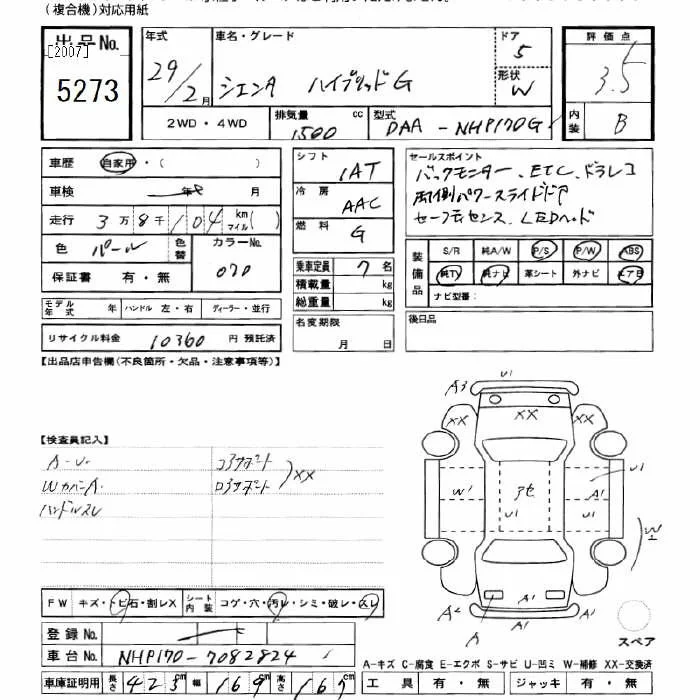 (複合機)対応用紙
出品No. [2007] 5273
年式 29/2月
車名・グレード シエンタ ハイブリッドG
ドア 5
形状 W
評価点 3.5
内装 B
2WD・4WD
排気量 1500 cc
型式 DAA-NHP170G
車歴 自家用・( )
車検 年 月
走行 3万8千104 km マイル( )
色 パール 色替 カラーNo. 070
保証書 有・無
シフト IAT
冷房 AAC
燃料 G
乗車定員 7名
積載量 kg
総重量 kg
セールスポイント
バックモニター、ETC、ドラレコ
両側パワースライドドア
セーフティセンス、LEDヘッド
装備品 S/R 純A/W P/S P/W ABS
純TV 純ナビ 革シート 外ナビ エアB
ナビ型番:
モデル年式 年 ハンドル 左・右 ディーラー・並行
リサイクル料金 10360 円 預託済
名変期限 月 日
後日品
【出品店申告欄(不良箇所・欠品・注意事項等)】
【検査員記入】
A-U. コアサポート
WカバーA. ロアサポート ) XX
ハンドルスレ
A3 U1
XX XX XX
W1 アセ U1 A1
U1 U1 W1
A2 A1 A1
スペア
FW キズ・トビ石・割レX シート内装 コゲ・穴・汚レ・シミ・破レ・スレ
登録No.
車台No. NHP170-7082824
A-キズ C-腐食 E-エクボ S-サビ U-凹ミ W-補修 XX-交換済
車庫証明用 長さ 423cm 幅 169cm 高さ 167cm
工具 有・無 ジャッキ 有・無